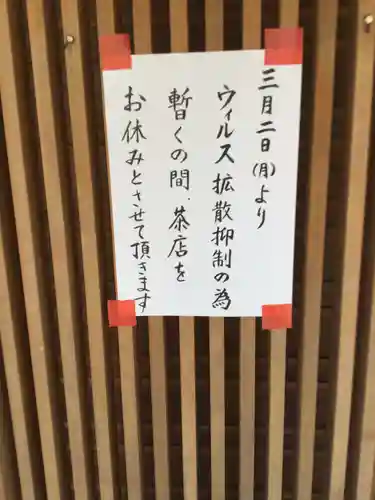 三月二日(月)より
ウィルス拡散抑制の為
暫くの間、茶店を
お休みとさせて頂きます